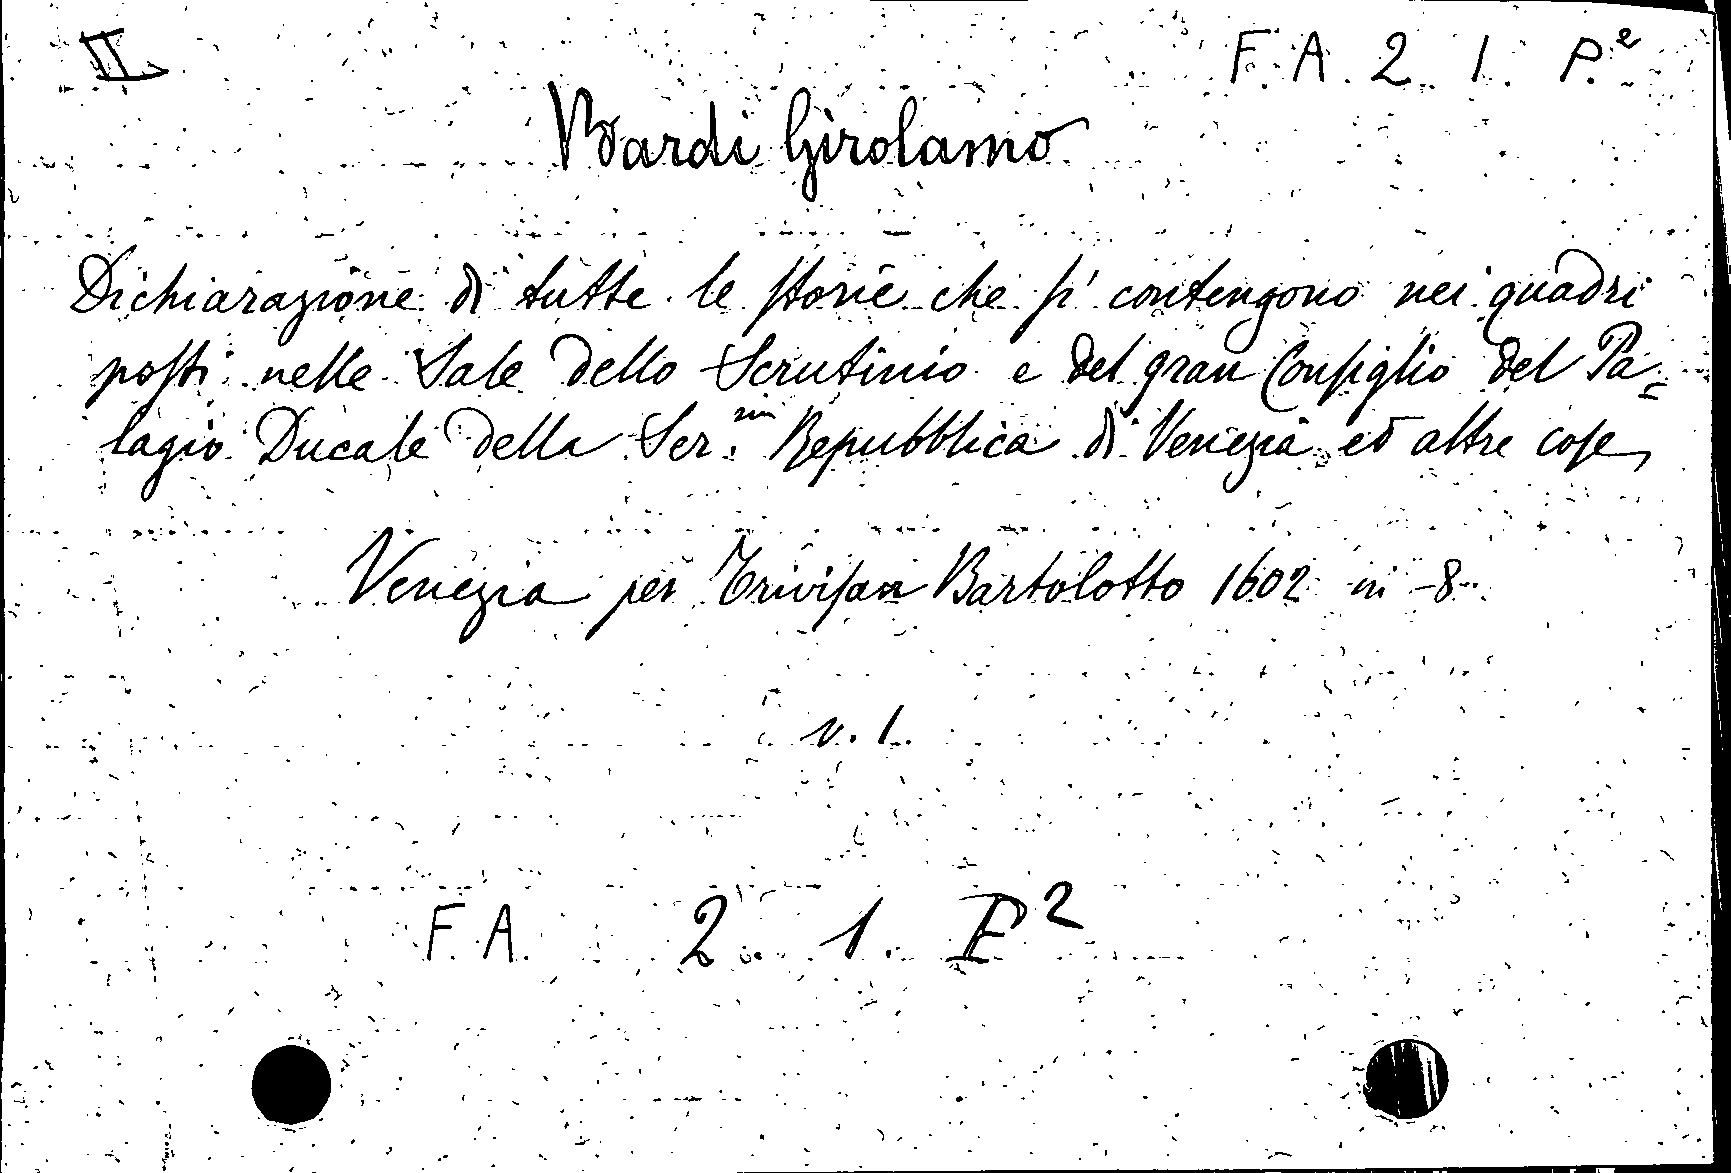 II
F. A. 2. 1. P.2
Bardi Girolamo
Dichiarazione di tutte le ſtorie che ſi contengono nei quadri
poſti nelle Sale dello Scrutinio e del gran Conſiglio del Pa=
lagio Ducale della Ser.ma Repubblica di Venezia ed altre coſe
Venezia per Triviſan Bartolotto 1602 in-8.
v. 1.
F. A. 2. 1. P2